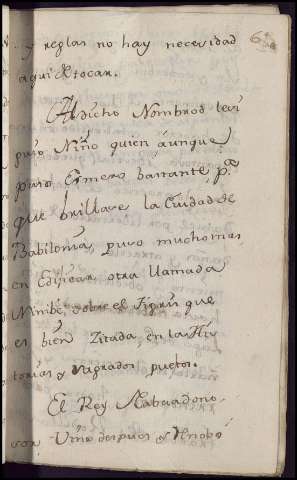 y reglas no hay necesidad
aqui de tocar.
Al dicho Nombrod le
paso Niño quien aunque
puso Esmero bastante, p.a
que brillase la Ciudad de
Babilonia, puso mucho mas
en Edificar otra llamada
Ninibe, sobre el Tigris que
es bien Zitada, en las His
torias y Sagrados puetos.
El Rey Nabucadono-
sor, Vino despues y